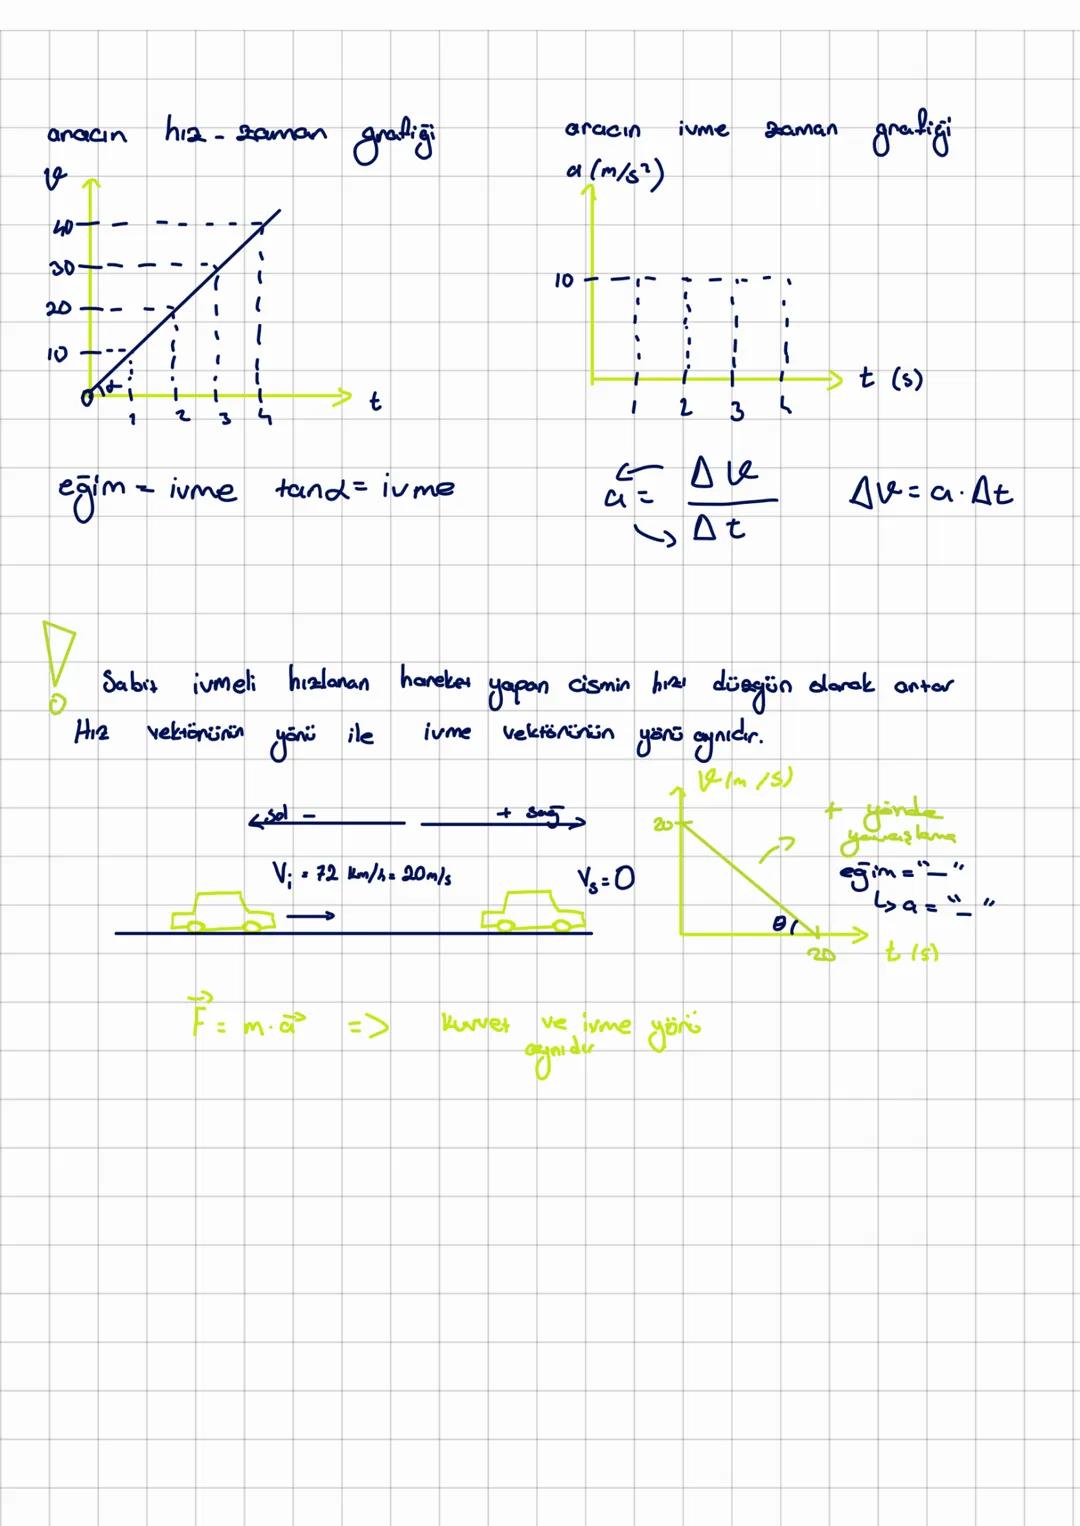 aracın hız - zaman grafiği
aracın ivme zaman grafiği
v
a (m/s²)
40
30
20
10
0
α
1 2 3 4
t
10
1 2 3 4
t (s)
eğim = ivme tanα = ivme
a = Δv / Δt
Δv = a . Δt
Sabit ivmeli hızlanan hareket yapan cismin hızı düzgün olarak artar
Hız vektörünün yönü ile ivme vektörünün yönü aynıdır.
sol -
+ sağ
Vi = 72 km/h = 20m/s
Vs = 0
v (m/s)
20
θ
20
t (s)
+ yönde
yavaşlama
eğim = "-"
↳ a = "-"
F⃗ = m . a⃗ => kuvvet ve ivme yönü
aynıdır